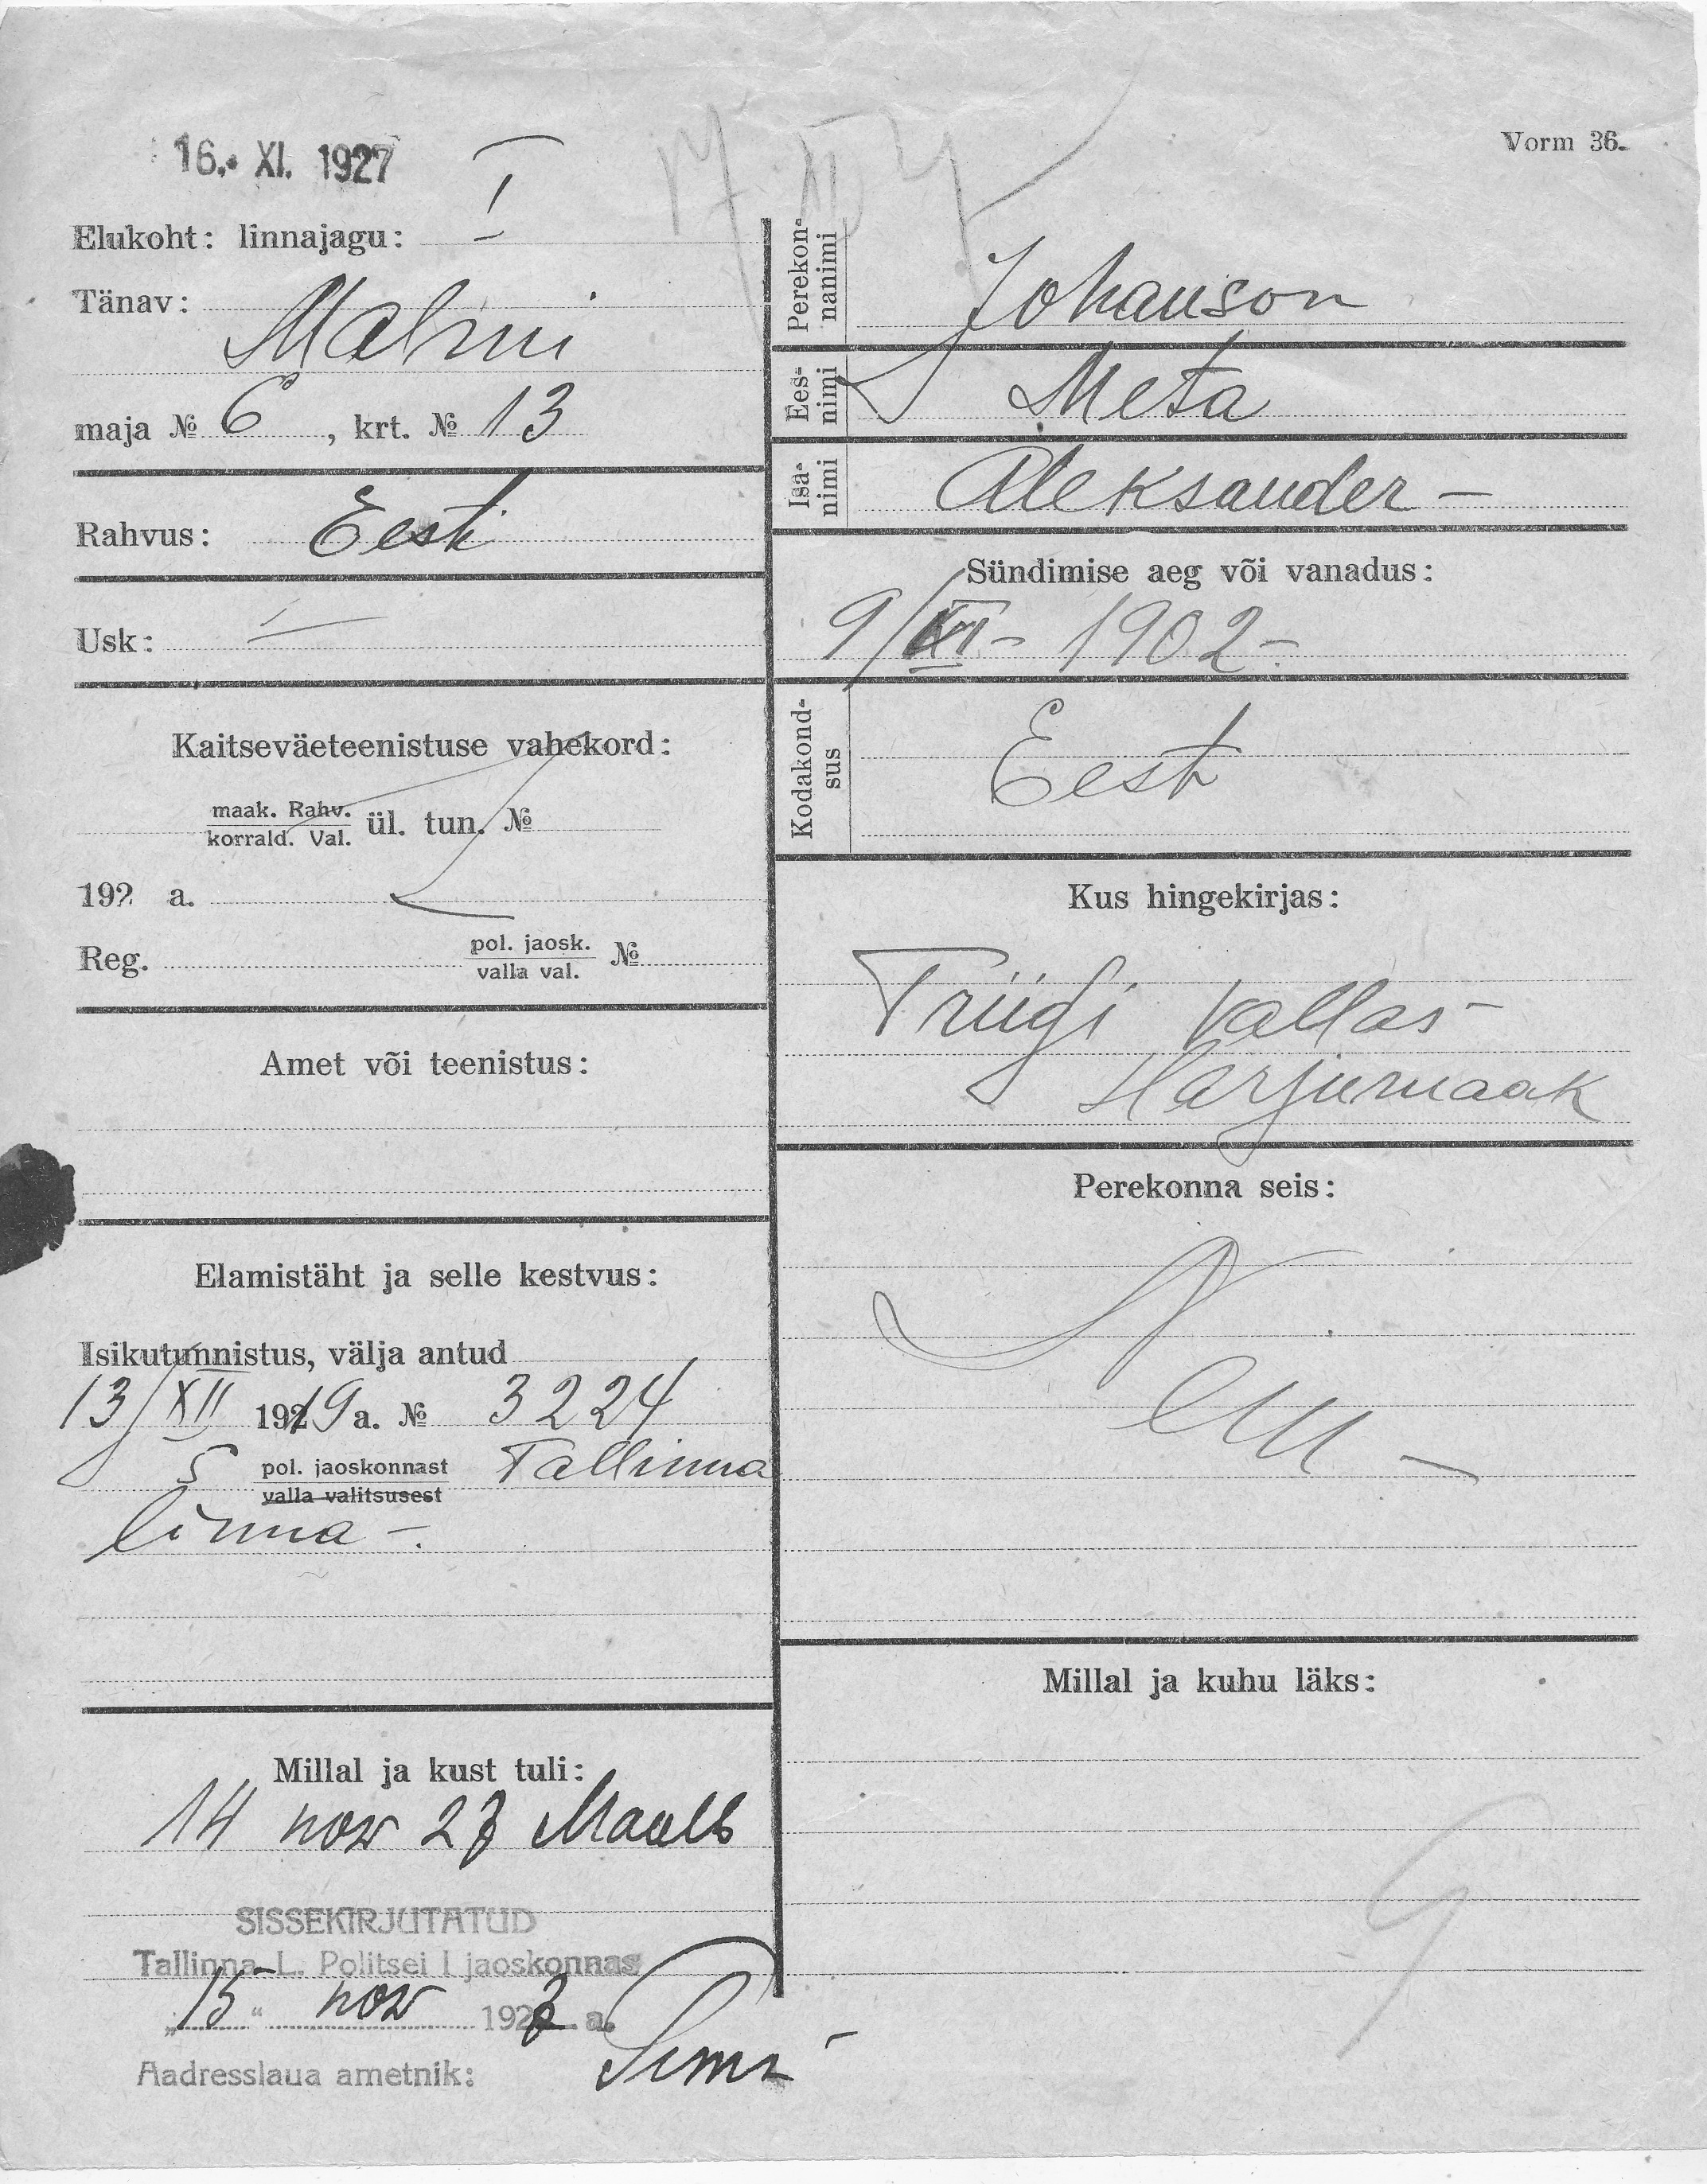 16. XI. 1927
Vorm 36.
Elukoht: linnajagu: I
Tänav:
Malmi
maja № 6, krt. № 13
Rahvus: Eesti
Usk: —
Kaitseväeteenistuse vahekord:
maak. Rahv.
korrald. Val. ül. tun. №
192 a.
Reg. pol. jaosk.
valla val. №
Amet või teenistus:
Elamistäht ja selle kestvus:
Isikutunnistus, välja antud
13/XII 1919 a. № 3224
5 pol. jaoskonnast Tallinna
valla valitsusest
linna -.
Millal ja kust tuli:
14 nov 27 Maalt
SISSEKIRJUTATUD
Tallinna L. Politsei I jaoskonnas
"15" nov 1927 a.
Aadresslaua ametnik:
Perekonnanimi Johanson
Eesnimi Meta
Isanimi Aleksander -
Sündimise aeg või vanadus:
9/XI - 1902 -
Kodakondsus Eesti
Kus hingekirjas:
Triigi vallas
Harjumaak
Perekonna seis:
Millal ja kuhu läks: